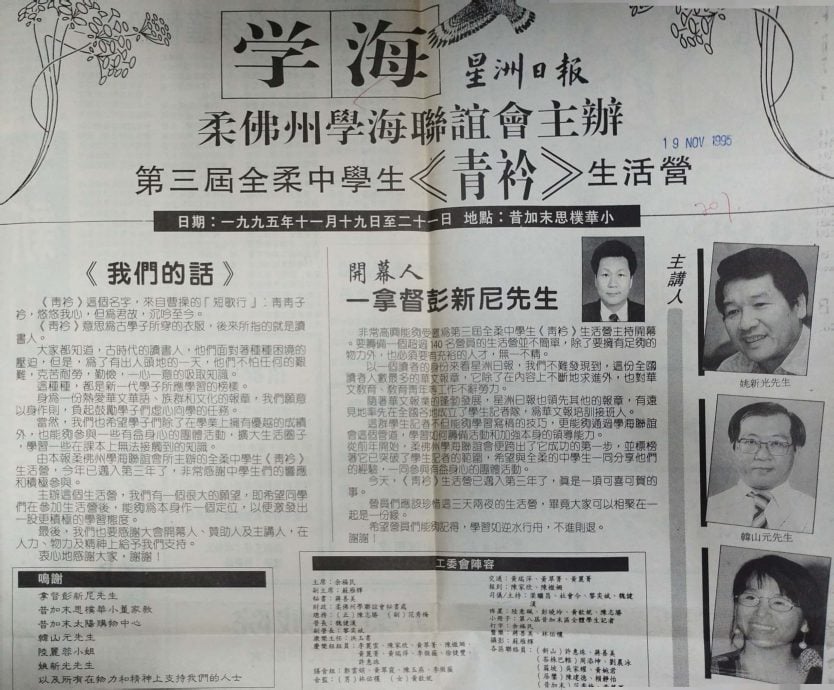 学海
星洲日報
柔佛州學海聯誼會主辦
19 NOV 1995
第三屆全柔中學生《青衿》生活營
日期：一九九五年十一月十九日至二十一日 地點：昔加末思樸華小
《我們的話》
《青衿》這個名字，來自曹操的「短歌行」：青青子
衿，悠悠我心，但爲君故，沉吟至今。
《青衿》意思爲古學子所穿的衣服，後來所指的就是讀
書人。
大家都知道，古時代的讀書人，他們面對著種種困境的
壓迫，但是，爲了有出人頭地的一天，他們不怕任何的艱
難，克苦耐勞，勤儉，一心一意的吸取知識。
這種種，都是新一代學子所應學習的榜樣。
身爲一份熱愛華文華語、族群和文化的報章，我們願意
以身作則，負起鼓勵學子們虛心向學的任務。
當然，我們也希望學子們除了在學業上擁有優越的成績
外，也能夠參與一些有益身心的團體活動，擴大生活圈子
，學習一些在課本上無法接觸到的知識。
由本報柔佛州學海聯誼會所主辦的全柔中學生《青衿》
生活營，今年已邁入第三年了，非常感謝中學生們的響應
和積極參與。
主辦這個生活營，我們有一個很大的願望，即希望同學
們在參加生活營後，能夠爲本身作一個定位，以便激發出
一股更積極的學習態度。
最後，我們也要感謝大會開幕人、贊助人及主講人，在
人力、物力及精神上給予我們支持。
衷心地感謝大家，謝謝！
鳴謝
拿督彭新尼先生
昔加末思樸華小董家教
昔加末太陽購物中心
韓山元先生
陸麗蓉小姐
姚新光先生
以及所有在物力和精神上支持我們的人士
開幕人
一拿督彭新尼先生
非常高興能夠受邀爲第三屆全柔中學生《青衿》生活營主持開幕
。要籌備一個超過140名營員的生活營並不簡單，除了要擁有足夠的
物力外，也必須要有充裕的人才，無一不精。
以一個讀者的身份來看星洲日報，我們不難發現到，這份全國
讀者人數最多的華文報章，它除了在內容上不斷地求進外，也對華
文教育、教育青年等工作不餘勞力。
隨著華文報業的蓬勃發展，星洲日報也領先其他的報章，有遠
見地率先在全國各地成立了學生記者隊，爲華文報培訓接班人。
這群學生記者不但能夠學習寫稿的技巧，更能夠通過學海聯誼
會這個管道，學習如何籌備活動和加強本身的領導能力。
從前年開始，柔佛州學海聯誼會便跨出了它成功的第一步，並標榜
著它已突破了學生記者的範圍，希望與全柔的中學生一同分享他們
的經驗，一同參與有益身心的團體活動。
今天，《青衿》生活營已邁入第三年了，眞是一項可喜可賀的
事。
營員們應該珍惜這三天兩夜的生活營，畢竟大家可以相聚在一
起是一份緣。
希望營員們能夠記得，學習如逆水行舟，不進則退。
謝謝！
主講人
姚新光先生
韓山元先生
工委會陣容
主席：余福民
副主席：蘇雅輝
秘書：蔣喜美
財政：柔佛州學聯誼會秘書處
總務：（正）陳志勝 （副）范秀梅
營長：魏健漢
副營長：黎奕斌
膳食組：
會監：（男）林佰穩 （女）黃歆妮
打字：余福民
攝影：蘇雅輝